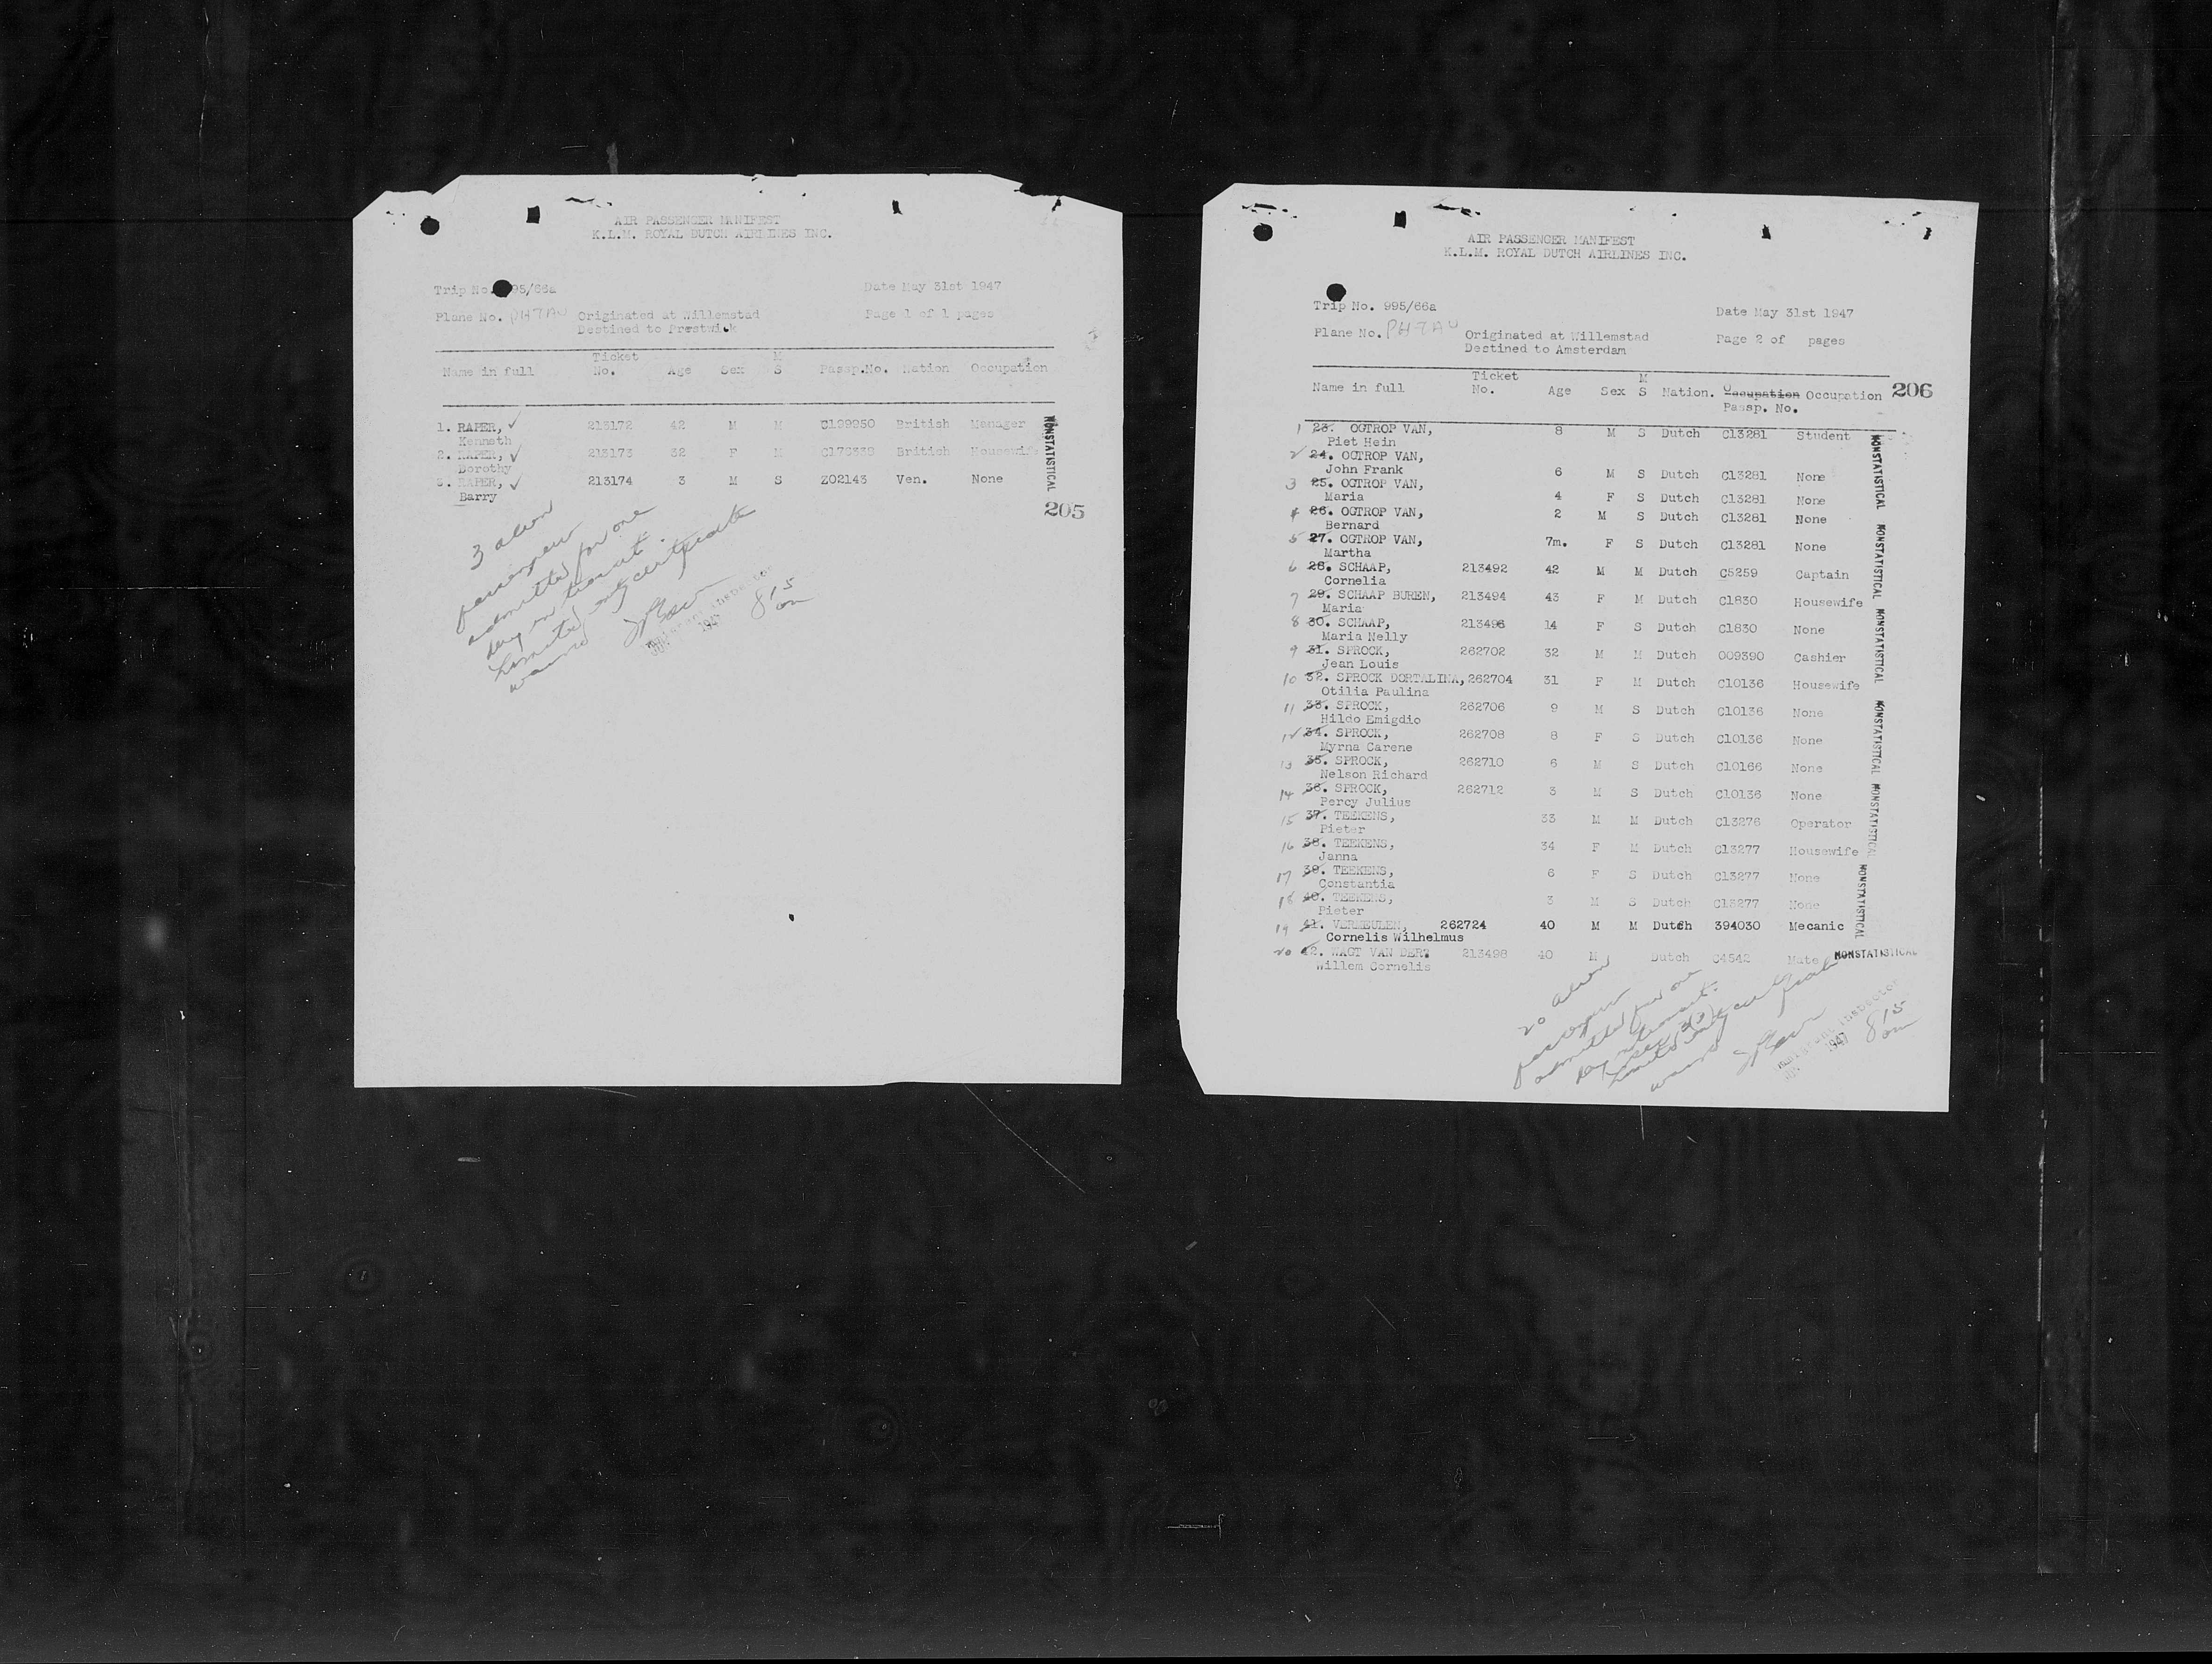 AIR PASSENGER MANIFEST
K.L.M. ROYAL DUTCH AIRLINES INC.
Trip No. 95/66a Date May 31st 1947
Plane No. PHTAW Originated at Willemstad Page 1 of 1 pages
Destined to Prestwick
Ticket M
Name in full No. Age Sex S Passp.No. Nation Occupation
1. RAPER, 213172 42 M M C199950 British Manager
Kenneth
2. RAPER, 213173 32 F M British Housewife
Dorothy
3. RAPER, 213174 3 M S Z02143 Ven. None
Barry
NONSTATISTICAL
205
3 alien
passengers
admitted for one
day in transit.
Limited entry certificate
waived
Immigrant Inspector
1947
8 15
am
AIR PASSENGER MANIFEST
K.L.M. ROYAL DUTCH AIRLINES INC.
Trip No. 995/66a Date May 31st 1947
Plane No. PHTAW Originated at Willemstad Page 2 of pages
Destined to Amsterdam
Ticket M
Name in full No. Age Sex S Nation. Occupation Occupation
Passp. No.
206
1 23. OGTROP VAN, 8 M S Dutch C13281 Student
Piet Hein
2 24. OGTROP VAN,
John Frank 6 M S Dutch C13281 None
3 25. OGTROP VAN,
Maria 4 F S Dutch C13281 None
4 26. OGTROP VAN, 2 M S Dutch C13281 None
Bernard
5 27. OGTROP VAN, 7m. F S Dutch C13281 None
Martha
6 28. SCHAAP, 213492 42 M M Dutch C5259 Captain
Cornelia
7 29. SCHAAP BUREN, 213494 43 F M Dutch C1830 Housewife
Maria
8 30. SCHAAP, 213496 14 F S Dutch C1830 None
Maria Nelly
9 31. SPROCK, 262702 32 M M Dutch 009390 Cashier
Jean Louis
10 32. SPROCK DORTALINA, 262704 31 F M Dutch C10136 Housewife
Otilia Paulina
11 33. SPROCK, 262706 9 M S Dutch C10136 None
Hildo Emigdio
12 34. SPROCK, 262708 8 F S Dutch C10136 None
Myrna Carene
13 35. SPROCK, 262710 6 M S Dutch C10166 None
Nelson Richard
14 36. SPROCK, 262712 3 M S Dutch C10136 None
Percy Julius
15 37. TEEKENS, 33 M M Dutch C13276 Operator
Pieter
16 38. TEEKENS, 34 F M Dutch C13277 Housewife
Janna
17 39. TEEKENS, 6 F S Dutch C13277 None
Constantia
18 40. TEEKENS, 3 M S Dutch C13277 None
Pieter
19 41. VERMEULEN, 262724 40 M M Dutch 394030 Mecanic
Cornelis Wilhelmus
20 42. WAGT VAN DER? 213498 40 M Dutch C4542 Mate
Willem Cornelis
NONSTATISTICAL
NONSTATISTICAL
NONSTATISTICAL
NONSTATISTICAL
NONSTATISTICAL
NONSTATISTICAL
NONSTATISTICAL
20 alien
passengers
admitted for one
day in transit.
Limited entry certificate
waived
Immigrant Inspector
1947
8 15
am